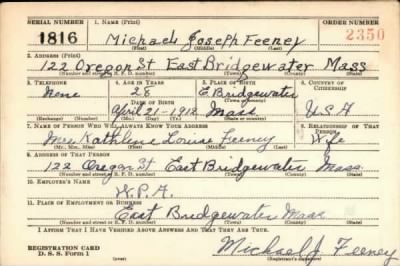 SERIAL NUMBER 1. NAME (Print) ORDER NUMBER
1816 Michael Joseph Feeney 2350
(First) (Middle) (Last)
2. ADDRESS (Print)
122 Oregon St East Bridgewater Mass
(Number and street or R. F. D. number) (Town) (County) (State)
3. TELEPHONE 4. AGE IN YEARS 5. PLACE OF BIRTH 6. COUNTRY OF CITIZENSHIP
None 28 E. Bridgewater
DATE OF BIRTH (Town or county)
April 21-1912 Mass U.S.A
(Exchange) (Number) (Mo.) (Day) (Yr.) (State or country)
7. NAME OF PERSON WHO WILL ALWAYS KNOW YOUR ADDRESS 8. RELATIONSHIP OF THAT PERSON
Mrs Kathleen Louise Feeney Wife
(Mr., Mrs., Miss) (First) (Middle) (Last)
9. ADDRESS OF THAT PERSON
122 Oregon St East Bridgewater Mass.
(Number and street or R. F. D. number) (Town) (County) (State)
10. EMPLOYER'S NAME
W.P.A.
11. PLACE OF EMPLOYMENT OR BUSINESS
East Bridgewater Mass
(Number and street or R. F. D. number) (Town) (County) (State)
I AFFIRM THAT I HAVE VERIFIED ABOVE ANSWERS AND THAT THEY ARE TRUE.
REGISTRATION CARD Michael J Feeney
D. S. S. Form 1 (Registrant's signature)